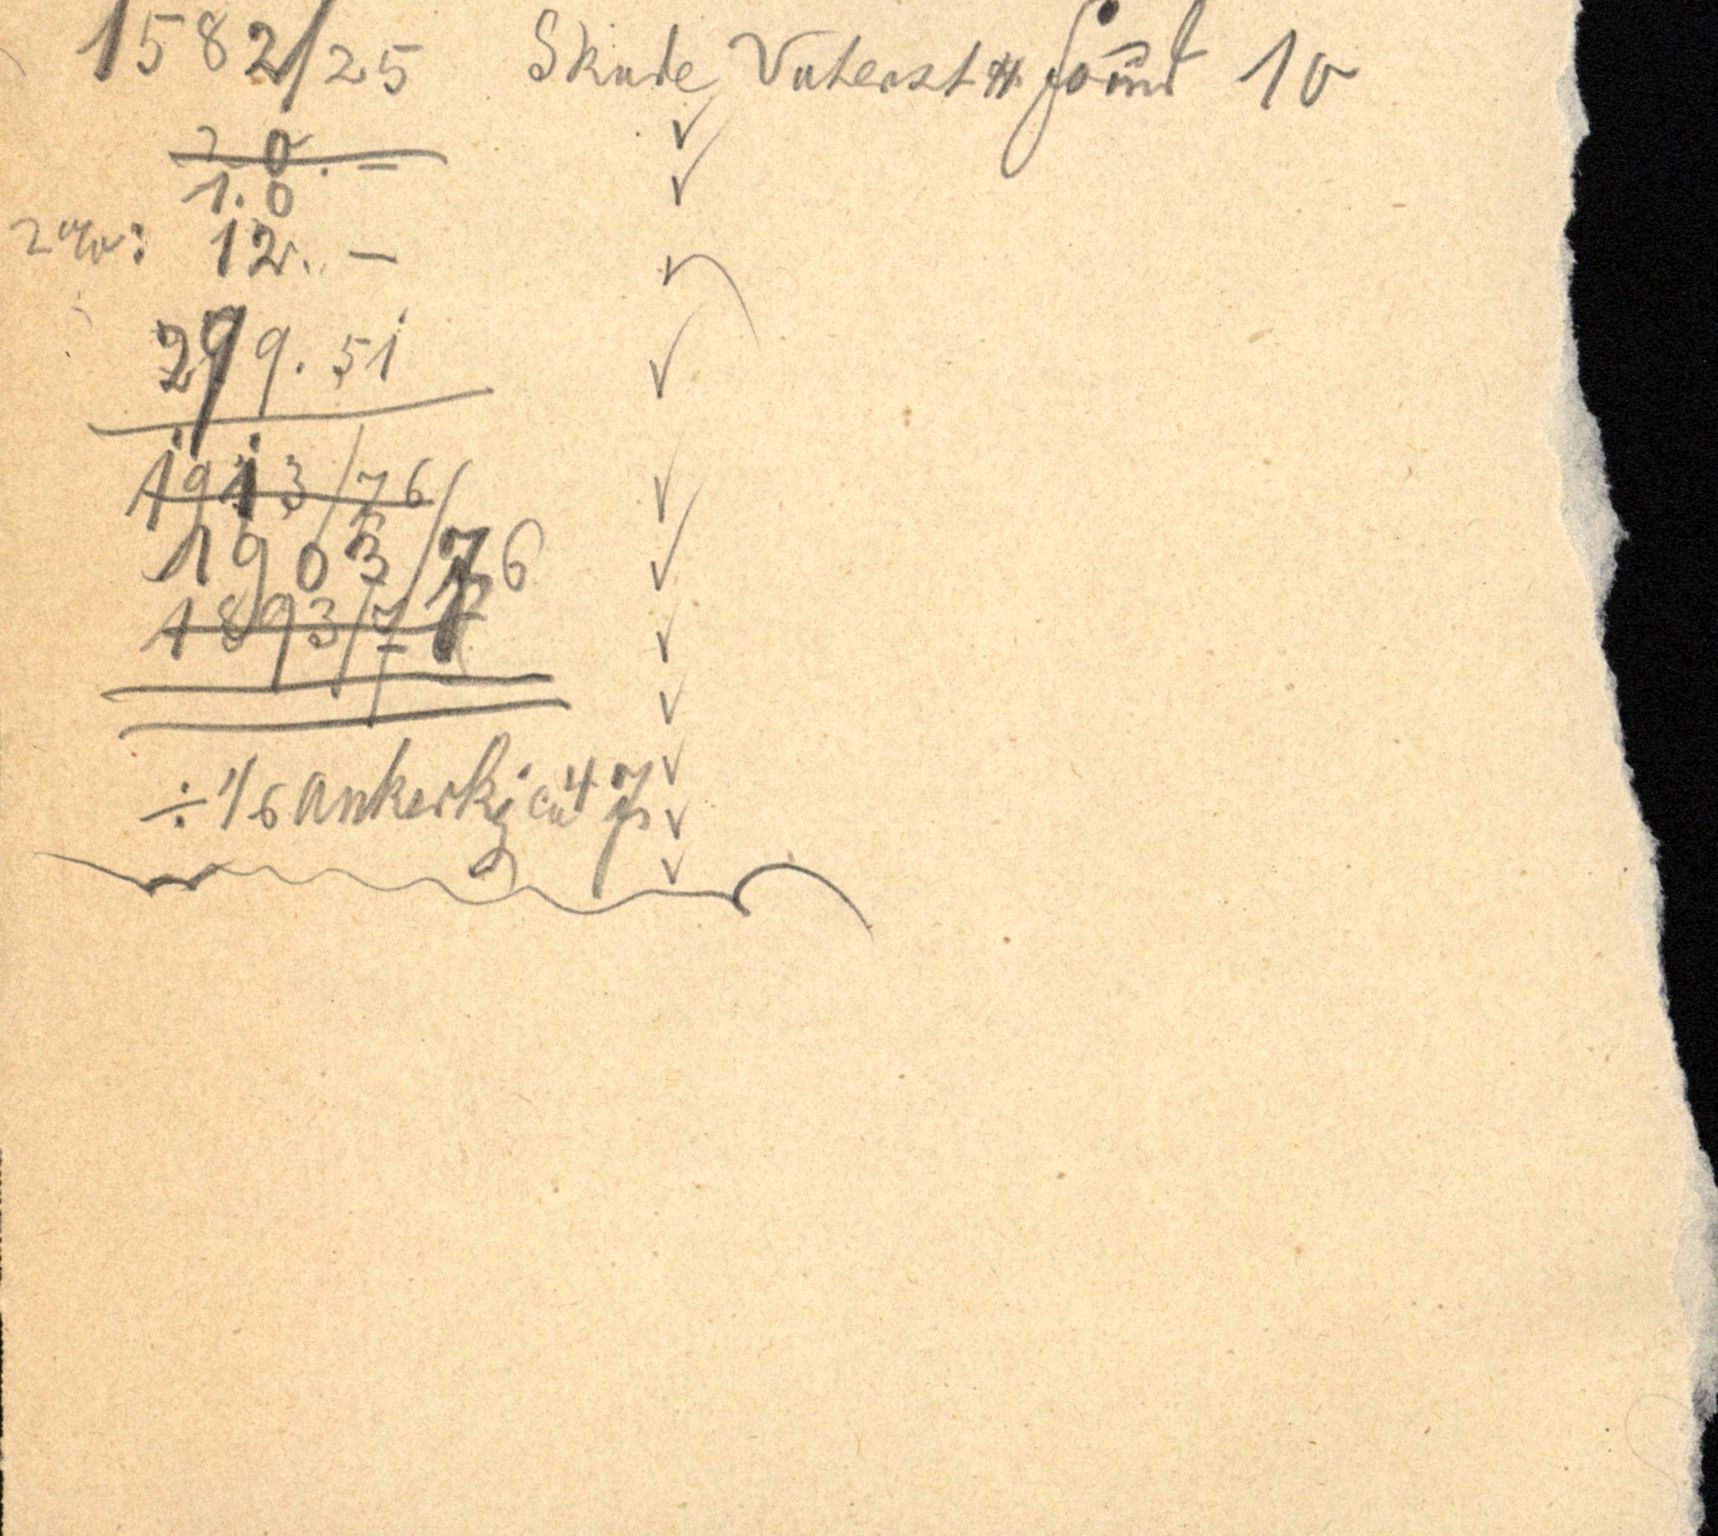 1582/25 Skade Vaterst 10
10
2%: 12. —
299.51
1913/76
1903/76
1893/7
÷ 1/6 Ankerkj ca 47